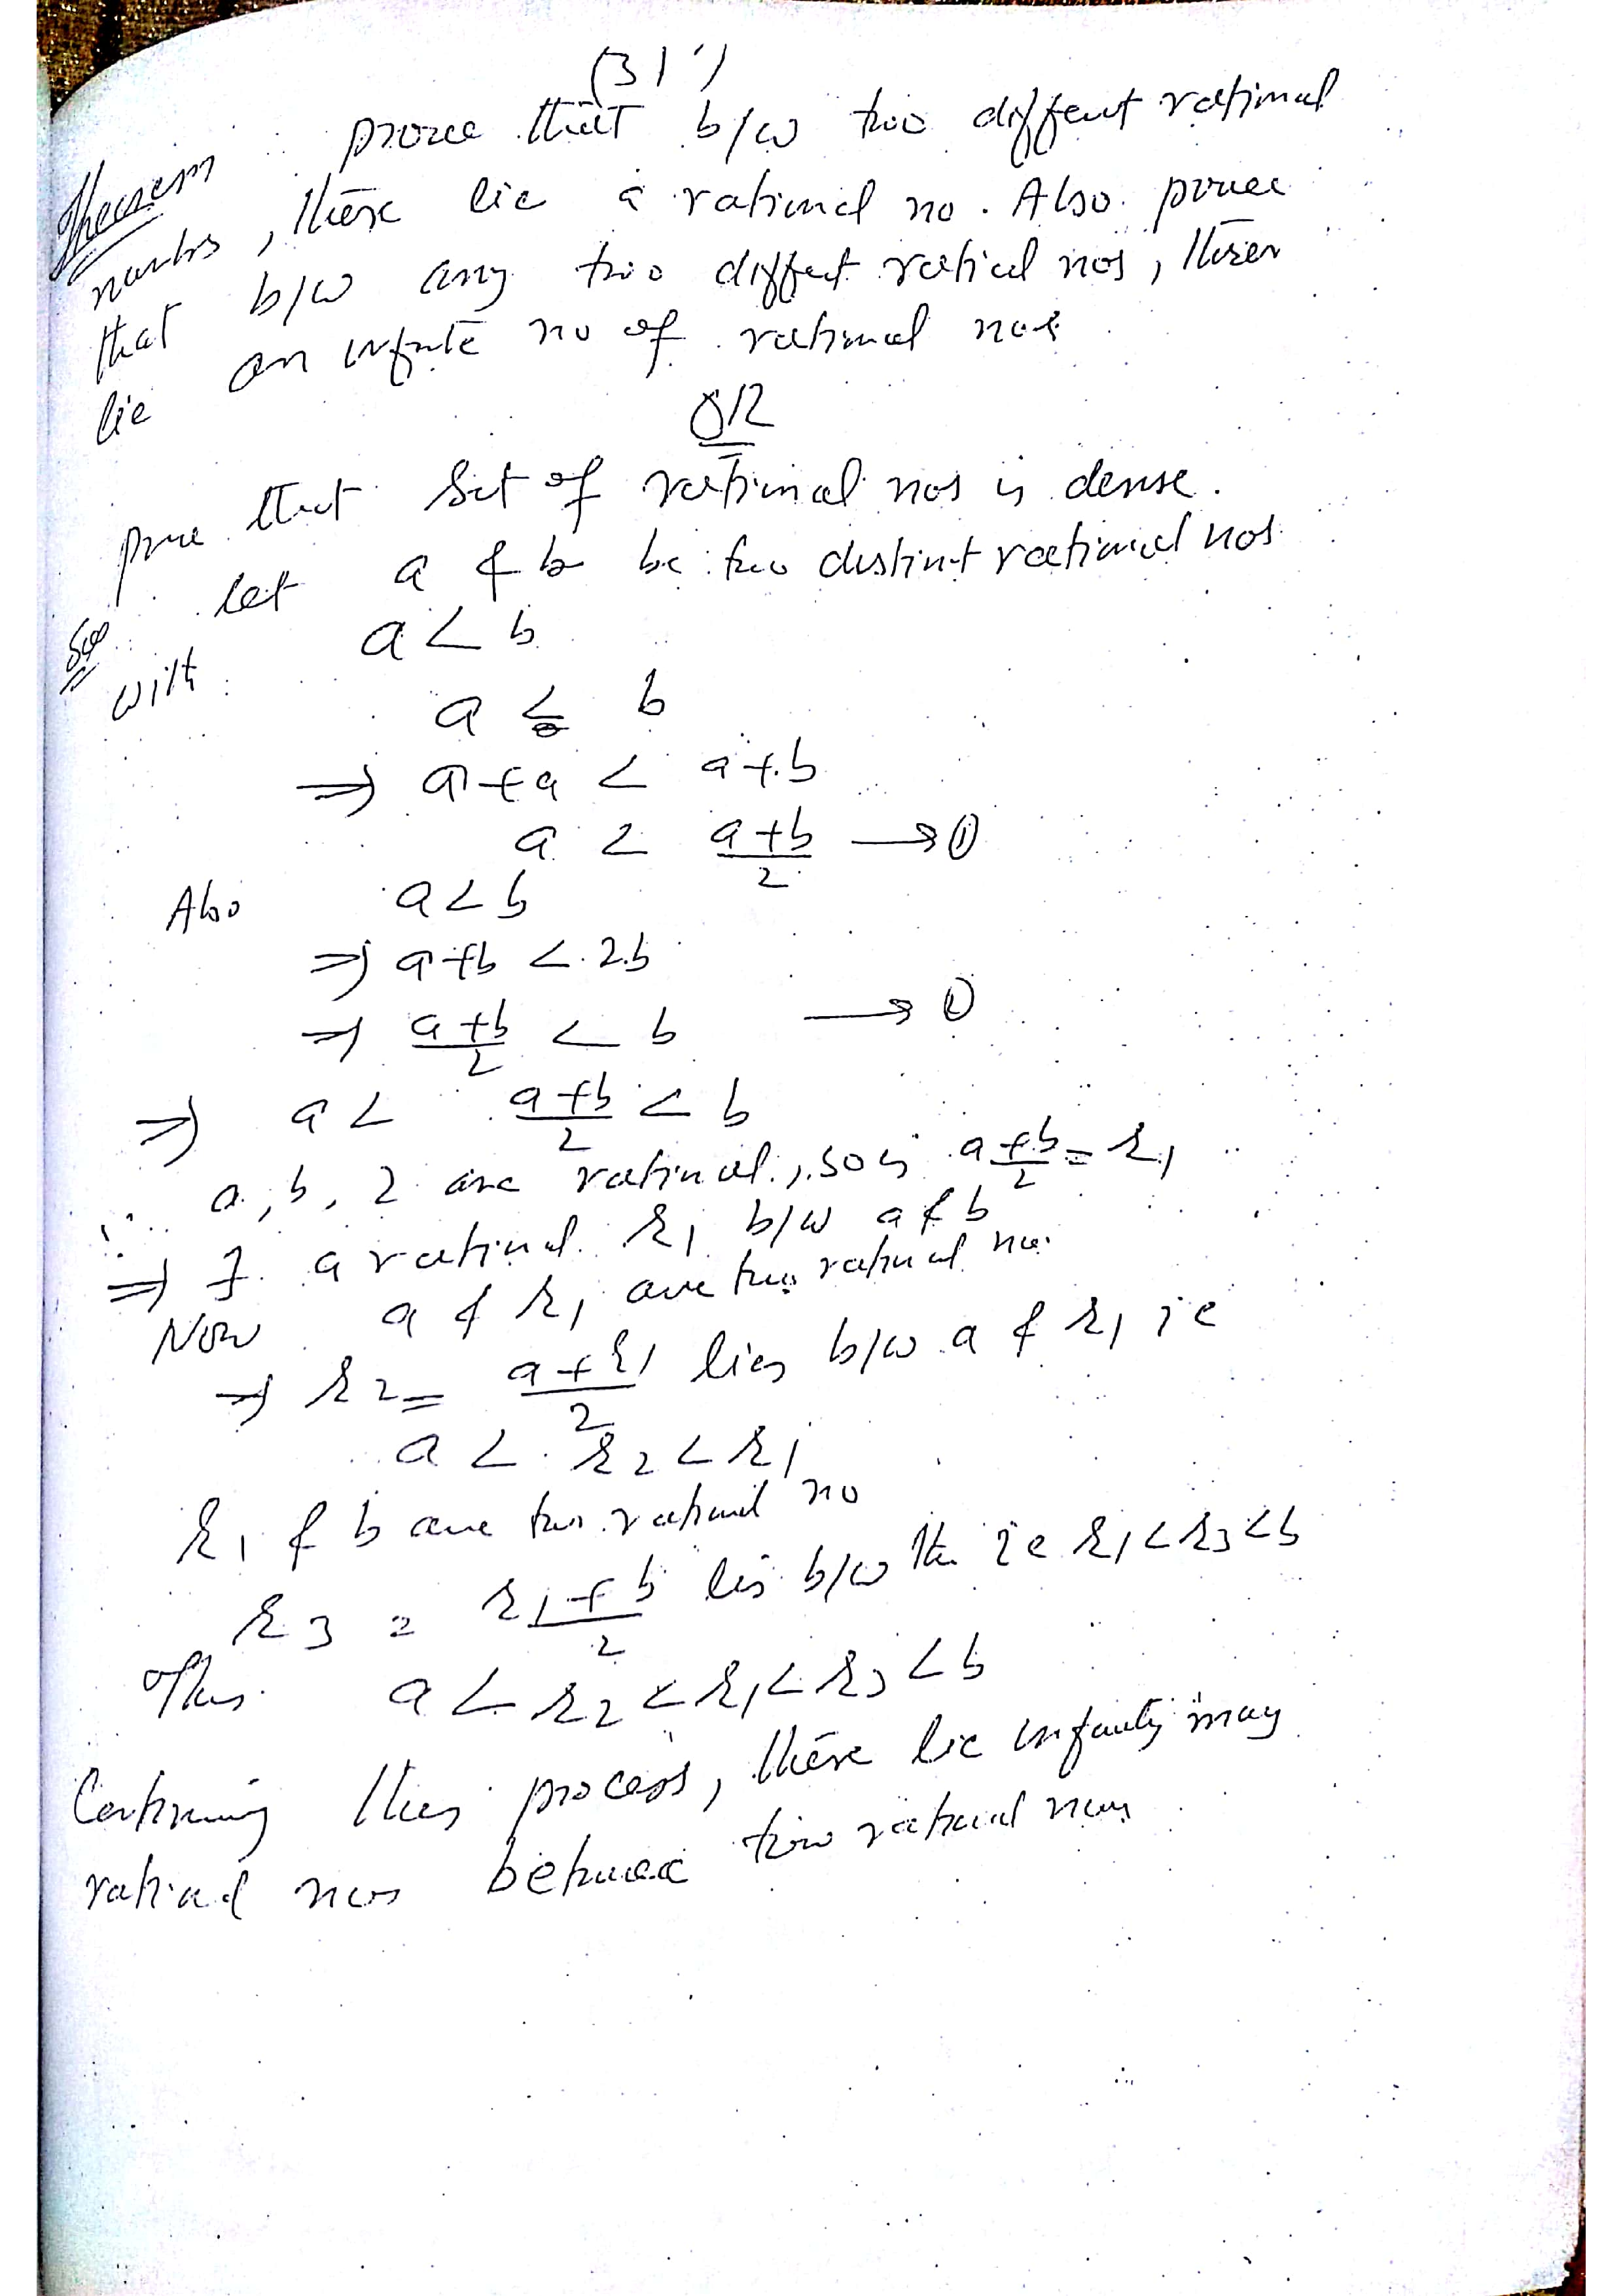 (31')
Theorem prove that b/w two diffent rational
numbrs, there lie a rational no. Also prove
that b/w any two diffent ratial nos, there
lie an infnte no of rational nos
OR
prove that Set of rational nos is dense.
Sol let a & b be two distint rational nos
with a < b
a < b
⇒ a+a < a+b
a < a+b/2 → ①
Also a<b
⇒ a+b < 2b
⇒ a+b/2 < b → ①
⇒ a < a+b/2 < b
∵ a, b, 2 are rational, so is a+b/2 = r1
⇒ ∃ a rational r1 b/w a & b
Now a & r1 are two rational no.
⇒ r2 = a+r1/2 lies b/w a & r1 ie
a < r2 < r1
r1 & b are two rational no
r3 = r1+b/2 lies b/w the ie r1<r3<b
Thus a < r2 < r1 < r3 < b
Continuing this process, there lie infinitly many
rational nos between two rational nos